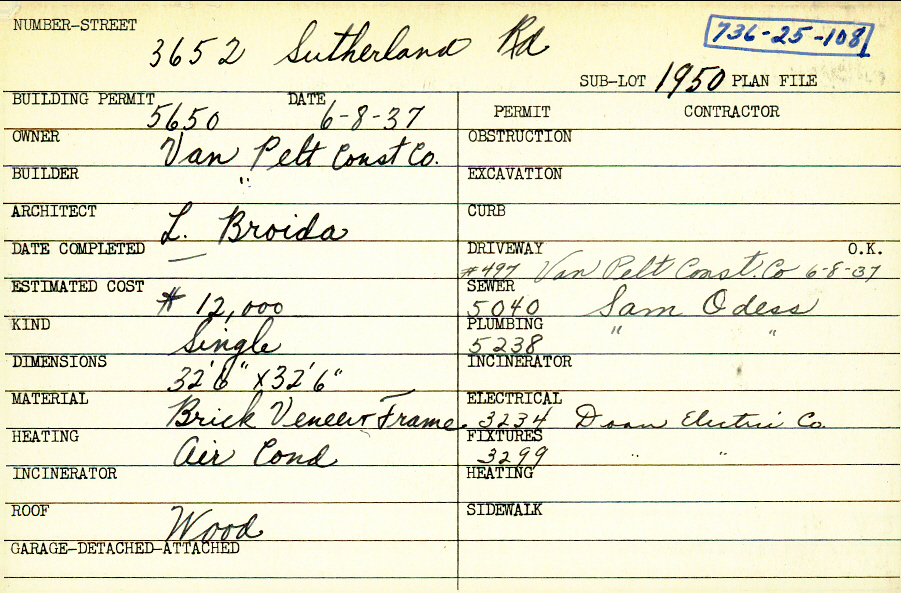 NUMBER-STREET
3652 Sutherland Rd
736-25-108
SUB-LOT 1950 PLAN FILE
BUILDING PERMIT 5650 DATE 6-8-37
PERMIT CONTRACTOR
OWNER Van Pelt Const Co.
OBSTRUCTION
BUILDER "
EXCAVATION
ARCHITECT L. Broida
CURB
DATE COMPLETED —
DRIVEWAY O.K.
#497 Van Pelt Const. Co 6-8-37
ESTIMATED COST $ 12,000
SEWER
5040 Sam Odess
KIND Single
PLUMBING " "
5238
DIMENSIONS 32'6" x 32'6"
INCINERATOR
MATERIAL Brick Veneer & Frame
ELECTRICAL
3234 Doan Electric Co.
HEATING Air Cond
FIXTURES
3299 " "
INCINERATOR
HEATING
ROOF Wood
SIDEWALK
GARAGE-DETACHED-ATTACHED